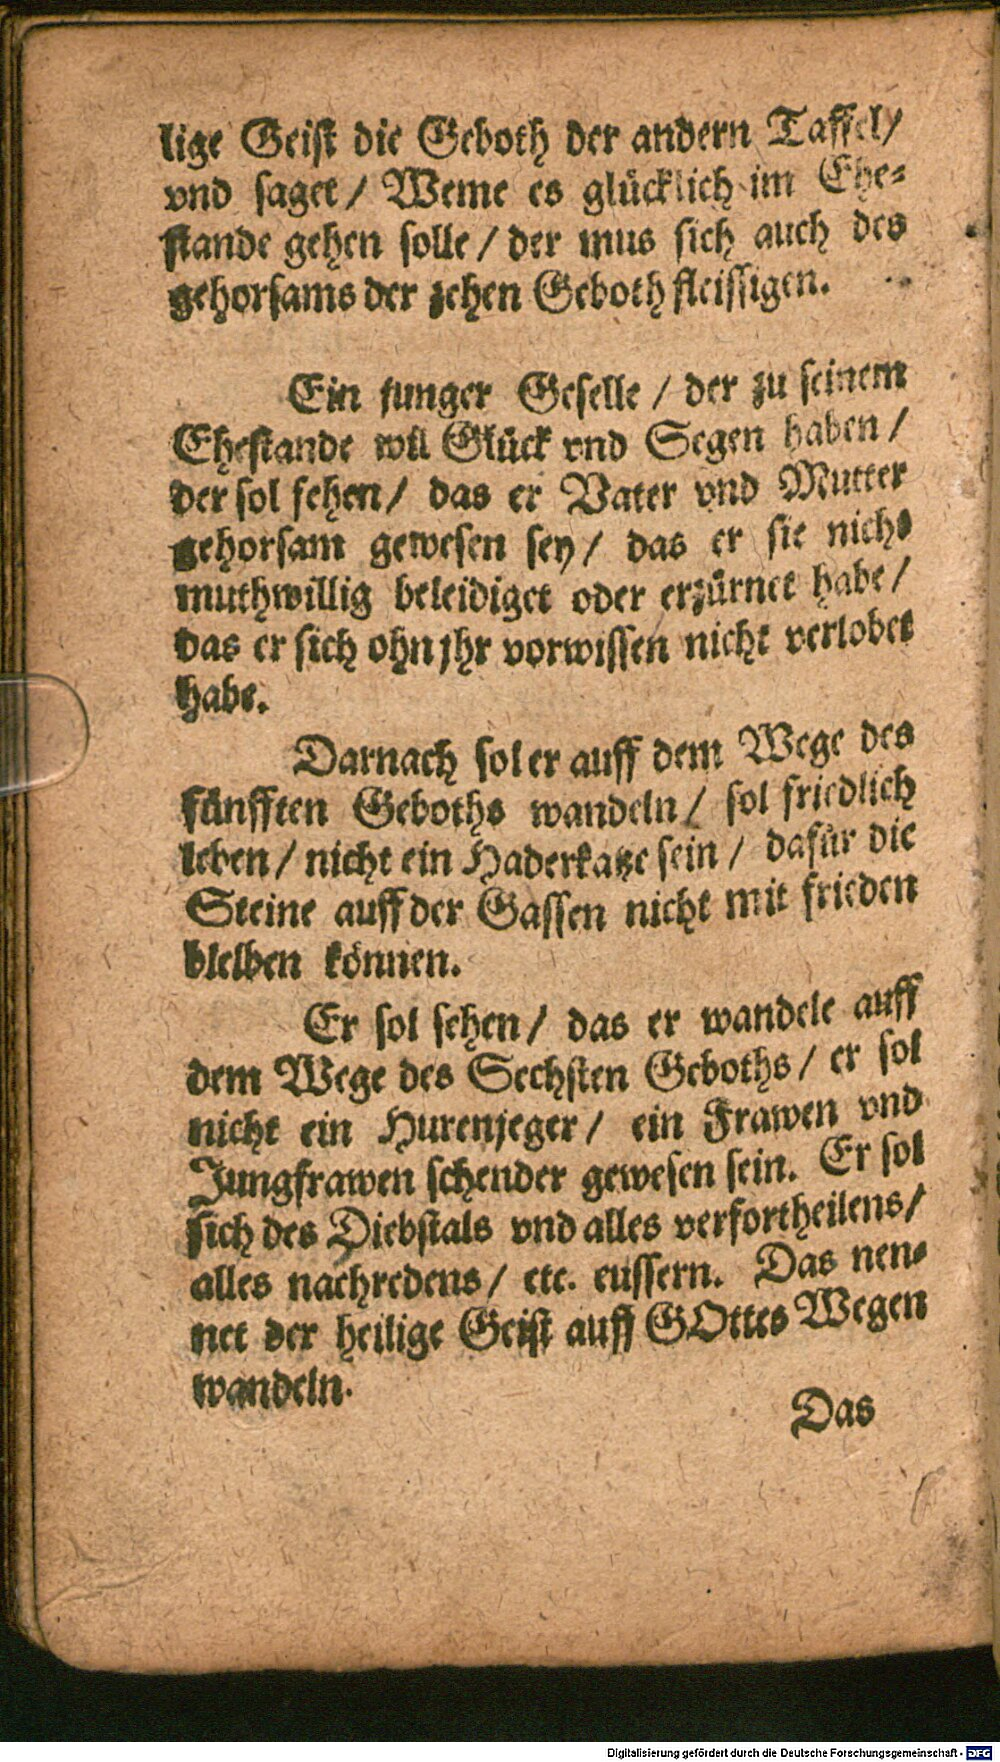 lige Geist die Geboth der andern Taffel/
vnd saget / Weme es glücklich im Ehe-
stande gehen solle / der mus sich auch des
gehorsams der zehen Geboth fleissigen.
Ein junger Geselle / der zu seinem
Ehestande wil Glück vnd Segen haben /
der sol sehen / das er Vater vnd Mutter
gehorsam gewesen sey / das er sie nicht
muthwillig beleidiget oder erzürnet habe /
das er sich ohn jhr vorwissen nicht verlobet
habe.
Darnach sol er auff dem Wege des
fünfften Geboths wandeln / sol friedlich
leben / nicht ein Haderkatze sein / dafür die
Steine auff der Gassen nicht mit frieden
bleiben können.
Er sol sehen / das er wandele auff
dem Wege des Sechsten Geboths / er sol
nicht ein Hurenjeger / ein Frawen vnd
Jungfrawen schender gewesen sein. Er sol
sich des Diebstals vnd alles verfortheilens /
alles nachredens / etc. eussern. Das nen-
net der heilige Geist auff GOttes Wegen
wandeln.
Das
Digitalisierung gefördert durch die Deutsche Forschungsgemeinschaft - DFG